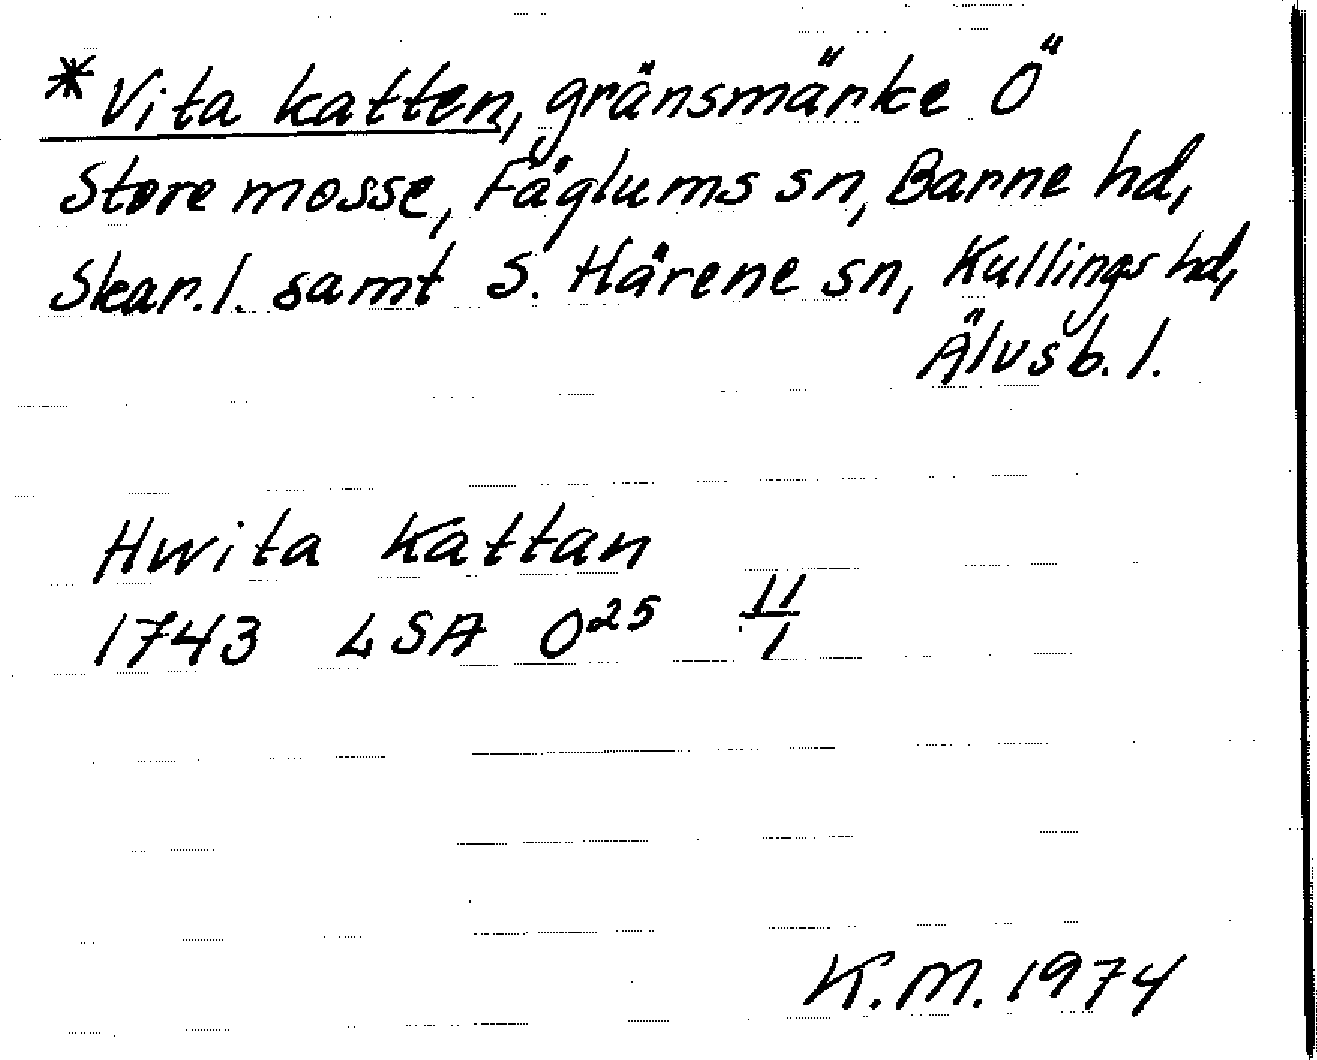 *Vita katten, gränsmärke Ö
Store mosse, Fåglums sn, Barne hd,
Skar.l. samt S. Härene sn, Kullings hd,
Älvsb. l.
Hwita Kattan
1743 LSA O25 11/1
K.M. 1974